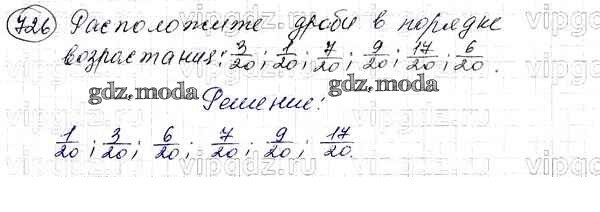 726 Расположите дроби в порядке
возрастания: 3/20; 1/20; 7/20; 9/20; 17/20; 6/20.
gdz.moda Решение: gdz.moda
1/20; 3/20; 6/20; 7/20; 9/20; 17/20.
vipgdz.ru